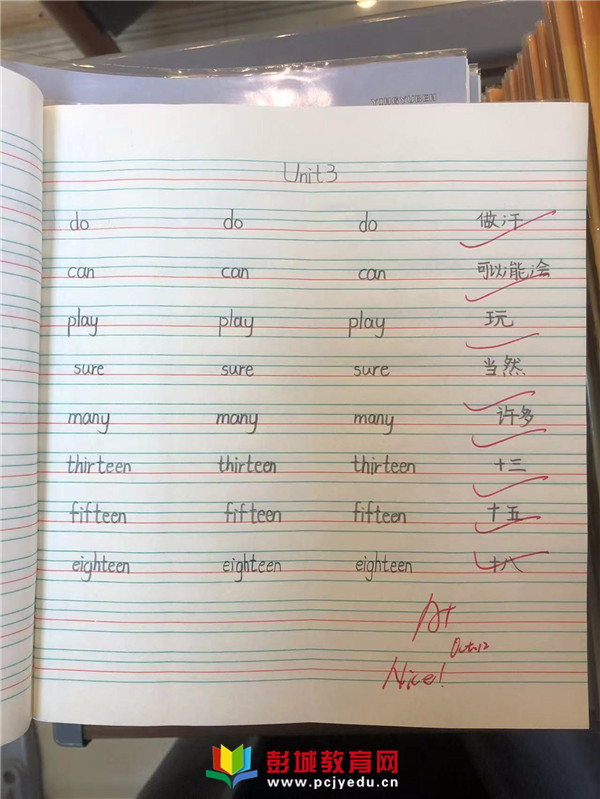 YINGYUBEN
Unit3
do do do 做;干
can can can 可以;能;会
play play play 玩
sure sure sure 当然
many many many 许多
thirteen thirteen thirteen 十三
fifteen fifteen fifteen 十五
eighteen eighteen eighteen 十八
A+
Oct.12
Nice!
彭城教育网
www.pcjyedu.cn